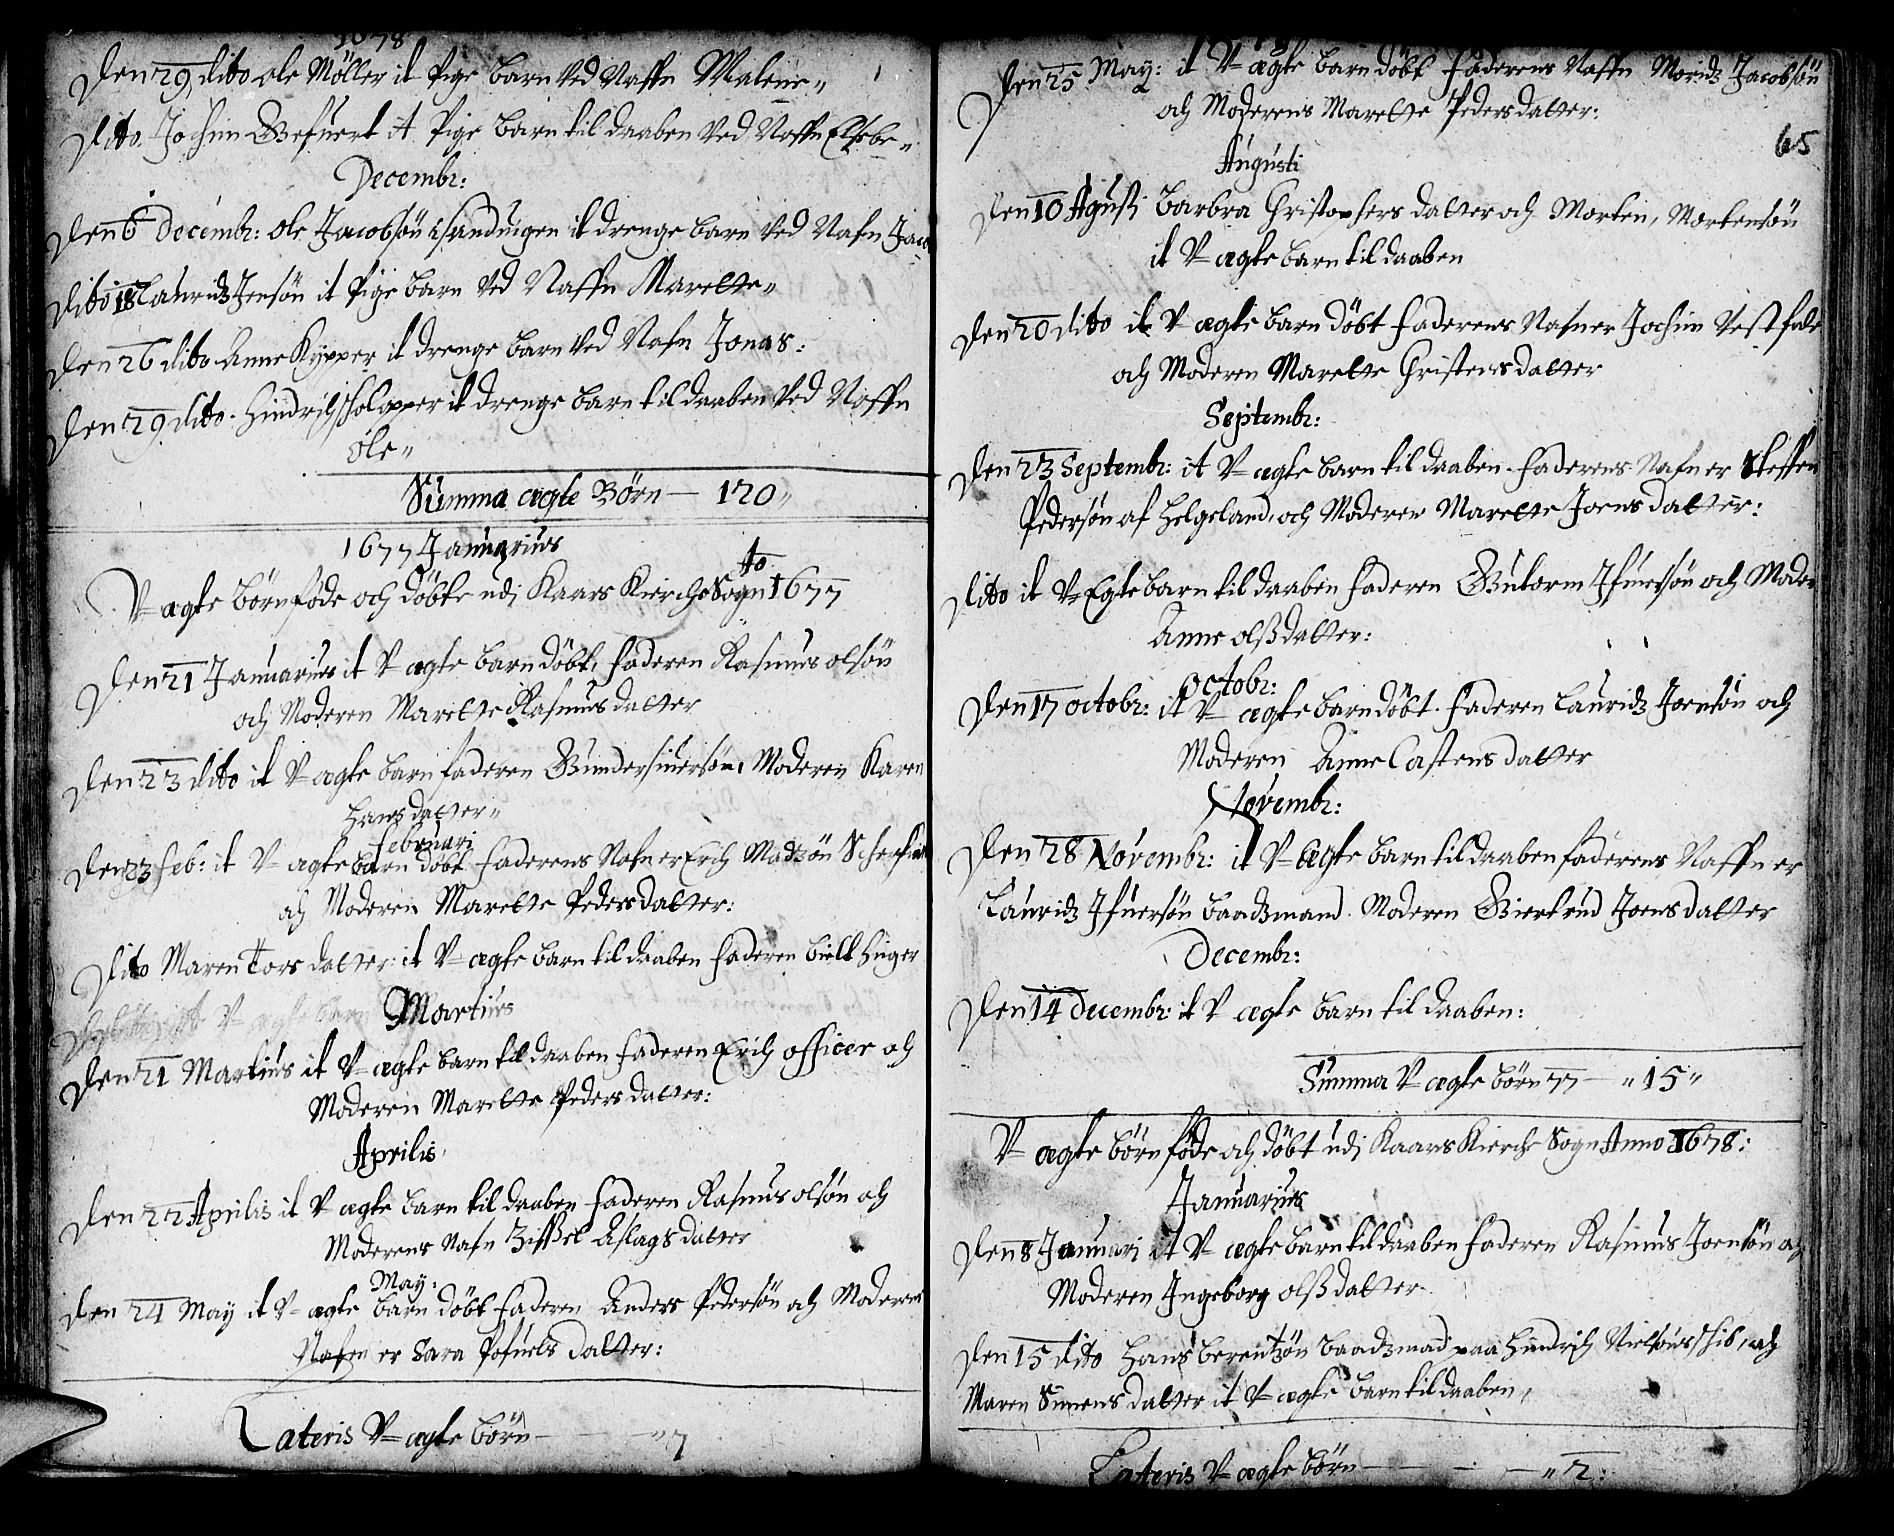 1678
Den 29 dito ole Møller it Pige barn ved Naffn Malene„
Dito Jochim it Pige barn til daaben ved Naffn Elsebe„
Decembr:
Den 6 Decembr: ole Jacobsøn i sanduigen it drenge barn ved Nafn Jaco
Dito 18 Lauridz Jensøn it Pige barn ved Naffn Marette„
Den 26 dito Anne Kypper it drenge barn ved Nafn Jonas:
Den 29 dito. Hindrich it drenge barn til daaben ved Naffn
ole„
Summa ægte Børn — 120„
1677 Januarius
V= ægte børn føde och døbte udj Kaars Kierche Sogn Ao 1677
Den 21 Januarius it V= ægte barn døbt, faderen Rasmus olsøn
och Moderen Marette Rasmusdatter
Den 23 dito it V= ægte barn faderen Moderen Karen
Hansdatter„
Februari
Den 23 Feb: it V= ægte barn døbt faderens Nafn er Erich Madzøn
och Moderen Marette Pedersdatter:
Dito Maren Torsdatter: it V= ægte barn til daaben faderen
V= ægte barn
Martius
Den 21 Martius it V= ægte barn til daaben faderen Erich officer och
Moderen Marette Pedersdatter:
Aprilis
Den 22 Aprilis it V= ægte barn til daaben faderen Rasmus olsøn och
Moderens Nafn Zissel Aslagsdatter
May:
Den 24 May it V= ægte barn døbt faderen Anders Pedersøn och Moderens
Nafn er Sara Pofuels datter:
Lateris V= ægte børn — „7
Den 25 May: it V= ægte barn døbt faderens Naffn Moridz Jacobsøn
och Moderens Marette Pedersdatter:
65
Augusti
Den 10 Agusti Barbra Christophersdatter och Morten, Mortensøn
it V= ægte barn til daaben
Den 20 dito it V= ægte barn døbt faderens Nafn er Jochim Vestfale
och Moderen Marette Christensdatter
Septembr:
Den 23 Septembr: it V= ægte barn til daaben. faderens Nafn er Steffen
Pedersøn af Helgeland, och Moderen Marette Joensdatter:
Dito it V= Egte barn til daaben faderen Gutorm Ifuersøn och Moder
Anne olßdatter:
Octobr:
Den 17 octobr: it V= ægte barn døbt. faderen Lauridz Joensøn och
Moderen Anne Castensdatter
Novembr:
Den 28 Novembr: it V= ægte barn til daaben faderens Naffn er
Lauridz Ifuersøn baadzmand. Moderen Giertrud Joensdatter
Decembr:
Den 14 Decembr: it V= ægte barn til daaben:
Summa V= ægte børn 77 — „15„
V= ægte børn føde och døbt udj Kaars Kierche Sogn Anno 1678:
Januarius
Den 8 Januari it V= ægte barn til daaben faderen Rasmus Joensøn och
Moderen Ingeborg olßdatter
Den 15 dito Hans berentzøn baadzmand paa Hindrich Nielsøns schib, och
Maren Simens datter it V= ægte barn til daaben,
Lateris V= ægte børn — — „2: